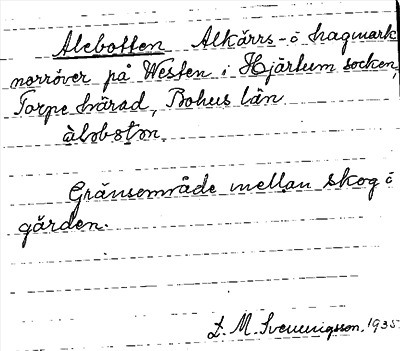 Alebotten Alkärrs- o hagmark
norröver på Westen i Hjärtum socken,
Torpe härad, Bohus län
àlǝbòtǝn.
Gränsområde mellan skog o
gärden.
L. M. Svenungsson. 1935